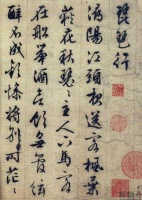 琵琶行
潯陽江頭夜送客楓葉
荻花秋瑟々主人下馬客
在船舉酒欲飲無管絃
醉不成歡慘將別々時茫々